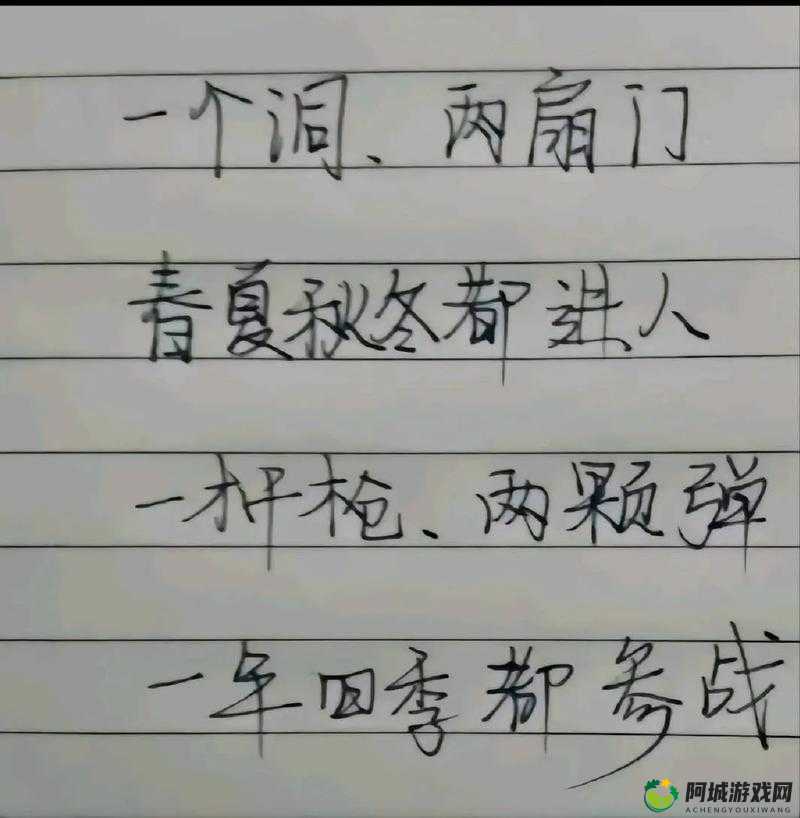 一个洞、两扇门
春夏秋冬都进人
一杆枪、两颗弹
一年四季都参战
阿城游戏网
ACHENGYOUXIWANG